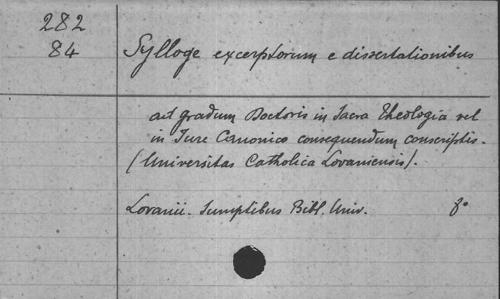 282
84
Sylloge excerptorum e dissertationibus
ad gradum Doctoris in Sacra Theologia vel
in Jure Canonico consequendum conscriptis.
(Universitas Catholica Lovaniensis).
Lovanii. Sumptibus Bibl. Univ. 8°